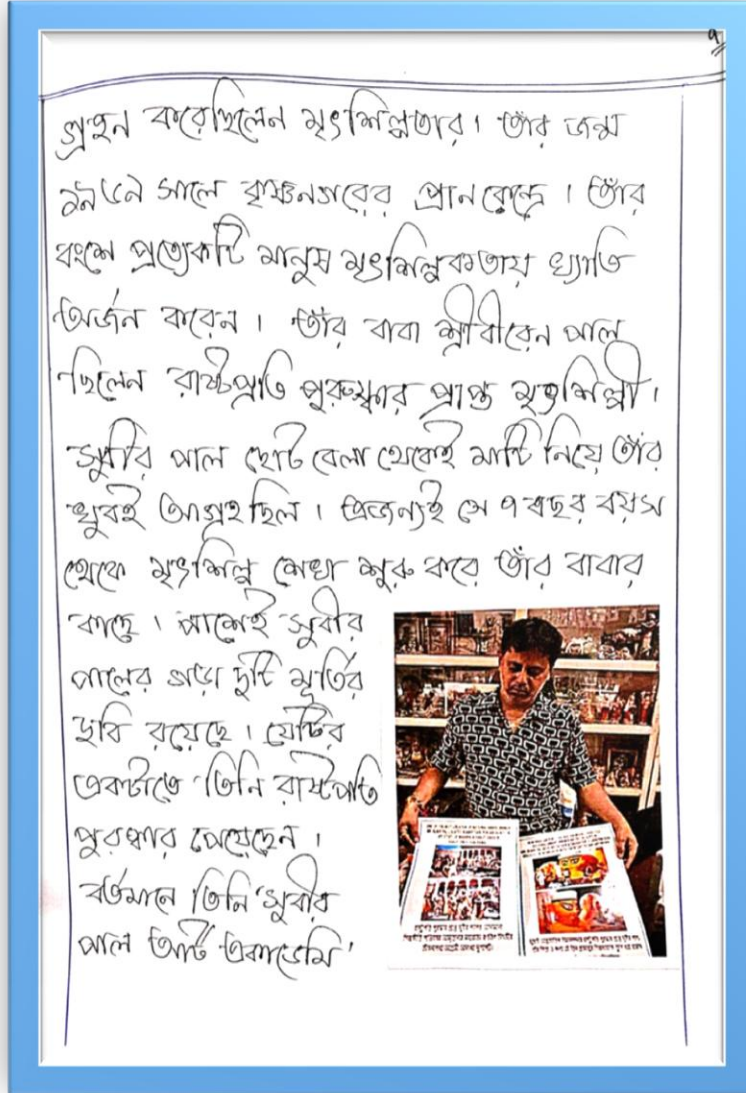 ৭
গ্রহন করেছিলেন মৃৎশিল্পতার। তাঁর জন্ম
১৯৬৯ সালে কৃষ্ণনগরের প্রানকেন্দ্রে। তাঁর
বংশে প্রত্যেকটি মানুষ মৃৎশিল্পকতায় খ্যাতি
অর্জন করেন। তাঁর বাবা শ্রী বীরেন পাল
ছিলেন রাষ্টপ্রতি পুরুস্কার প্রাপ্ত মৃৎশিল্পী।
সুবীর পাল ছোট বেলা থেকেই মাটি নিয়ে তাঁর
খুবই আগ্রহ ছিল। এজন্যই সে ৭ বছর বয়স
থেকে মৃৎশিল্প শেখা শুরু করে তাঁর বাবার
কাছে। পাশেই সুবীর
পালের গড়া দুটি মূর্তির
ছবি রয়েছে। যেটির
একটাতে তিনি রাষ্টপতি
পুরস্কার পেয়েছেন।
বর্তমানে তিনি 'সুবীর
পাল আর্ট একাডেমি'